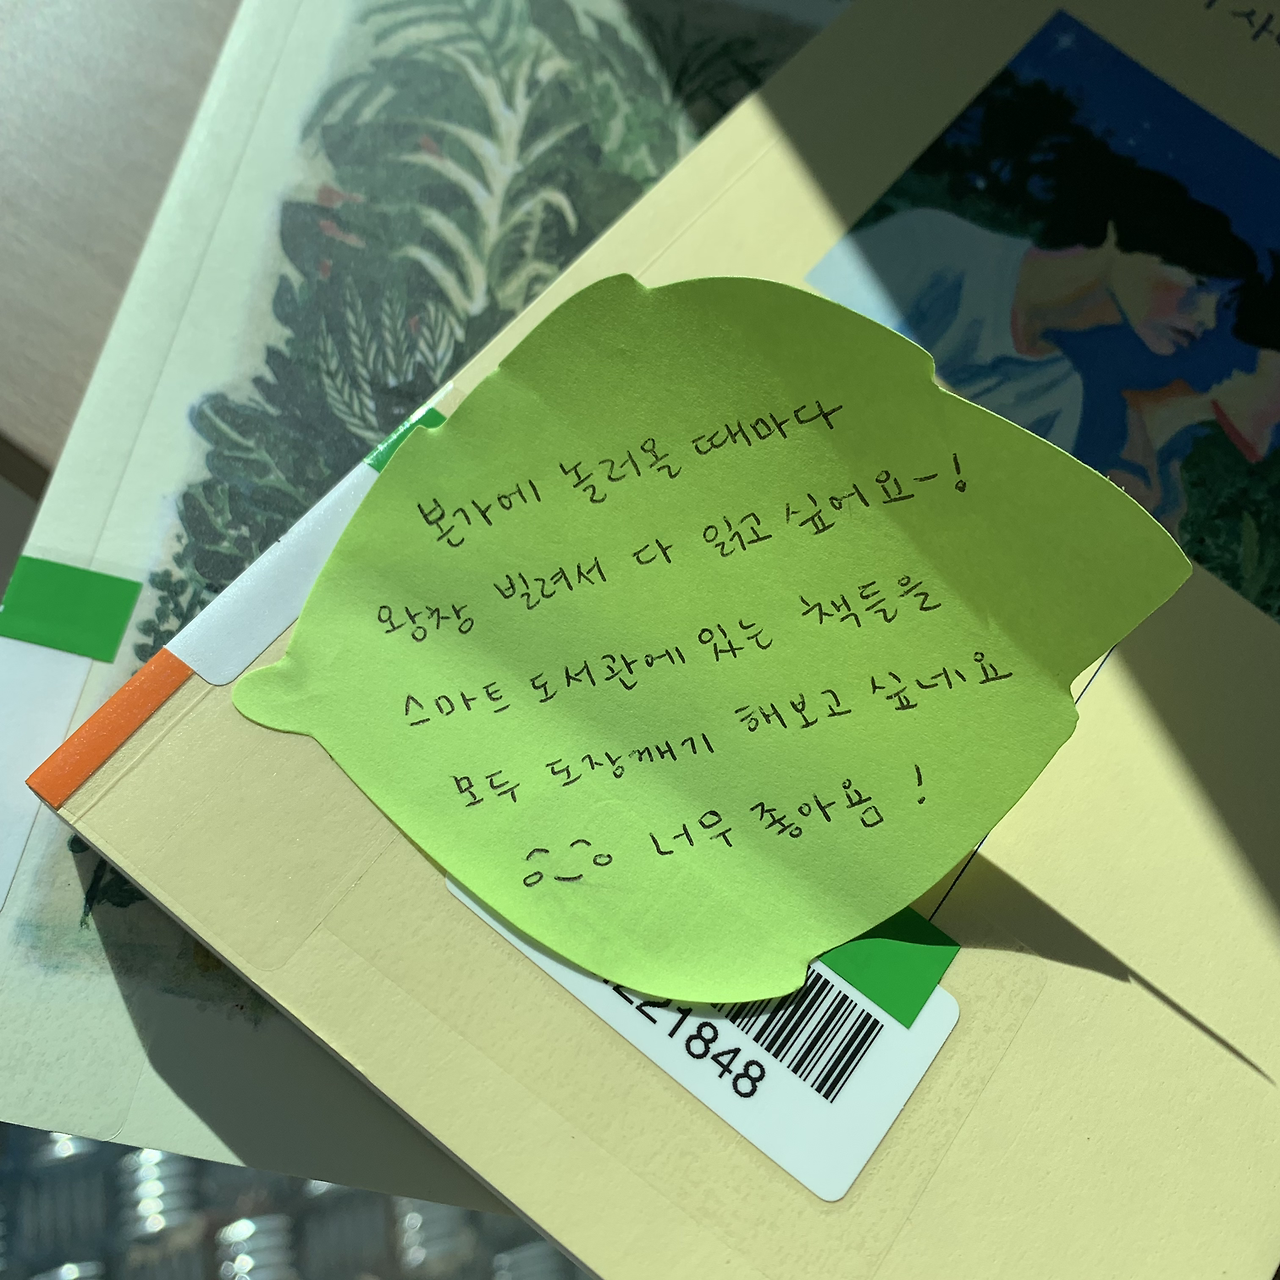 본가에 놀러올 때마다
왕창 빌려서 다 읽고 싶어요~!
스마트 도서관에 있는 책들을
모두 도장깨기 해보고 싶네요
너무 좋아욤 !
221848